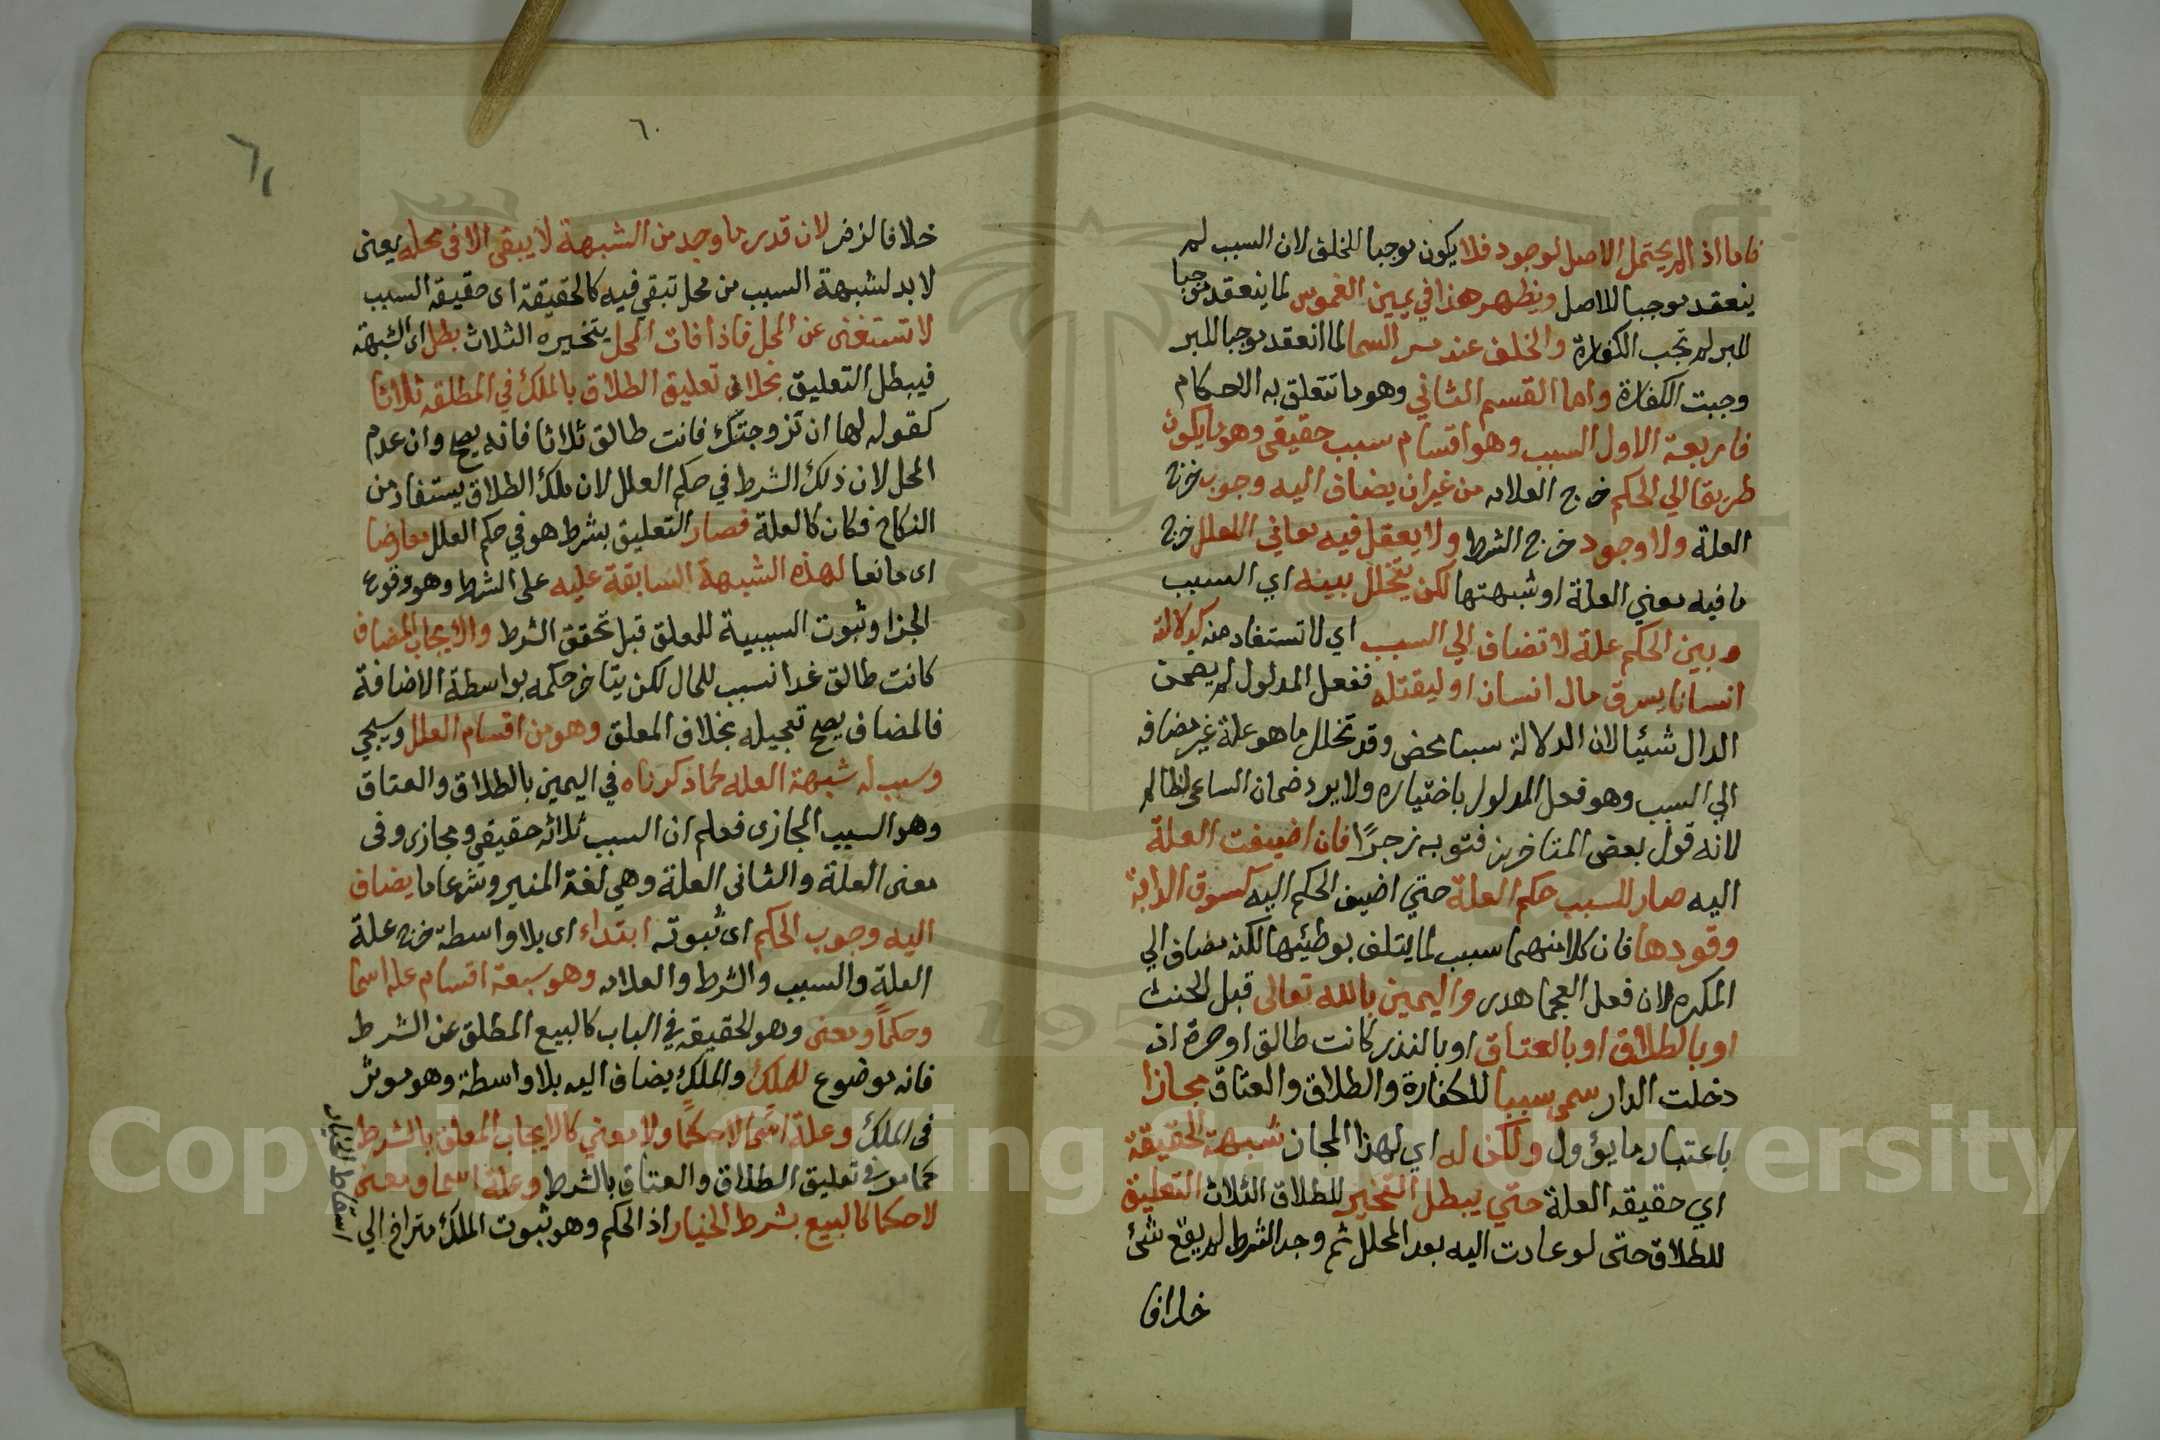 فاما اذا لم يحتمل الاصل لوجود فلا يكون موجبا للخلف لان السبب لم
ينعقد موجبا للاصل ويظهر هذا في يمين الغموس لما ينعقد موجبا
للبر لم تجب الكفارة والخلف عند مس السما لما انعقد موجبا للبر
وجبت الكفارة واما القسم الثاني وهو ما تتعلق به الاحكام
فاربعة الاول السبب وهو اقسام سبب حقيقي وهو ما يكون
طريقا الي الحكم خرج العلامه من غير ان يضاف اليه وجوب خرج
العلة ولا وجود خرج الشرط ولا يعقل فيه معاني العلل خرج
ما فيه معني العلة او شبهتها لكن يتخلل بينه اي السبب
وبين الحكم علة لا تضاف الي السبب اي لا تستفاد منه كدلالة
انسانا يسرق مال انسان او ليقتله ففعل المدلول لم يضمن
الدال شيئا لان الدلالة سبب محض وقد تخلل ما هو علة غير مضافه
الي السبب وهو فعل المدلول باختياره ولا يرد ضمان الساعي لظالم
لانه قول بعض المتاخرين فتوبه زجرًا فان اضيفت العلة
اليه صار للسبب حكم العلة حتي اضيف الحكم اليه كسوق الدابة
وقودها فان كلا منهما سبب لما يتلف بوطئها لكنه مضاف الي
المكره لان فعل العجما هدر واليمين بالله تعالى قبل الحنث
او بالطلاق او بالعتاق او بالنذر كانت طالق او حرة ان
دخلت الدار سمي سببا للكفارة والطلاق والعتاق مجازا
باعتبار ما يؤول ولكن له اي لهذا المجاز شبهة الحقيقة
اي حقيقه العلة حتي يبطل التنجيز للطلاق الثلاث التعليق
للطلاق حتى لو عادت اليه بعد المحلل ثم وجد الشرط لم يقع شئ
خلافا
٦٠
٦١
خلافا لزفر لان قدر ما وجد من الشبهة لا يبقى الا في محله يعني
لا بد لشبهة السبب من محل تبقي فيه كالحقيقة اى حقيقه السبب
لا تستغنى عن المحل فاذا فات المحل بتنجيزه الثلاث بطل اى الشبهة
فيبطل التعليق بخلاف تعليق الطلاق بالملك في المطلقه ثلاثا
كقوله لها ان تزوجتك فانت طالق ثلاثا فانه يصح وان عدم
المحل لان ذلك الشرط في حكم العلل لان ملك الطلاق يستفاد من
النكاح فكان كالعلة فصار التعليق بشرط هو في حكم العلل معارضا
اى مانعا لهذه الشبهة السابقة عليه على الشرط وهو وقوع
الجزا وثبوت السببية للمعلق قبل تحقق الشرط والايجاب المضاف
كانت طالق غدا سبب للحال لكن يتاخر حكمه بواسطة الاضافة
فالمضاف يصح تعجيله بخلاف المعلق وهو من اقسام العلل وسيجي
وسبب له شبهة العله كما ذكرناه في اليمين بالطلاق والعتاق
وهو السبب المجازى فعلم ان السبب ثلاثه حقيقي ومجازى وفى
معنى العلة والثانى العلة وهي لغة المغير وشرعا ما يضاف
اليه وجوب الحكم اى ثبوته ابتداء اى بلا واسطة خرج علة
العلة والسبب والشرط والعلامه وهو سبعة اقسام علة اسما
وحكماً ومعنى وهو الحقيقه في الباب كالبيع المطلق عن الشرط
فانه موضوع للملك والملك يضاف اليه بلا واسطة وهو موثر
فى الملك وعلة اسمًا لا حكمًا ولا معني كالايجاب المعلق بالشرط
كما مر في تعليق الطلاق والعتاق بالشرط وعلة اسما ومعنى
لا حكما كالبيع بشرط الخيار اذ الحكم وهو ثبوت الملك متراخ الي
اسقاط الخيار
Copyright © King Saud University